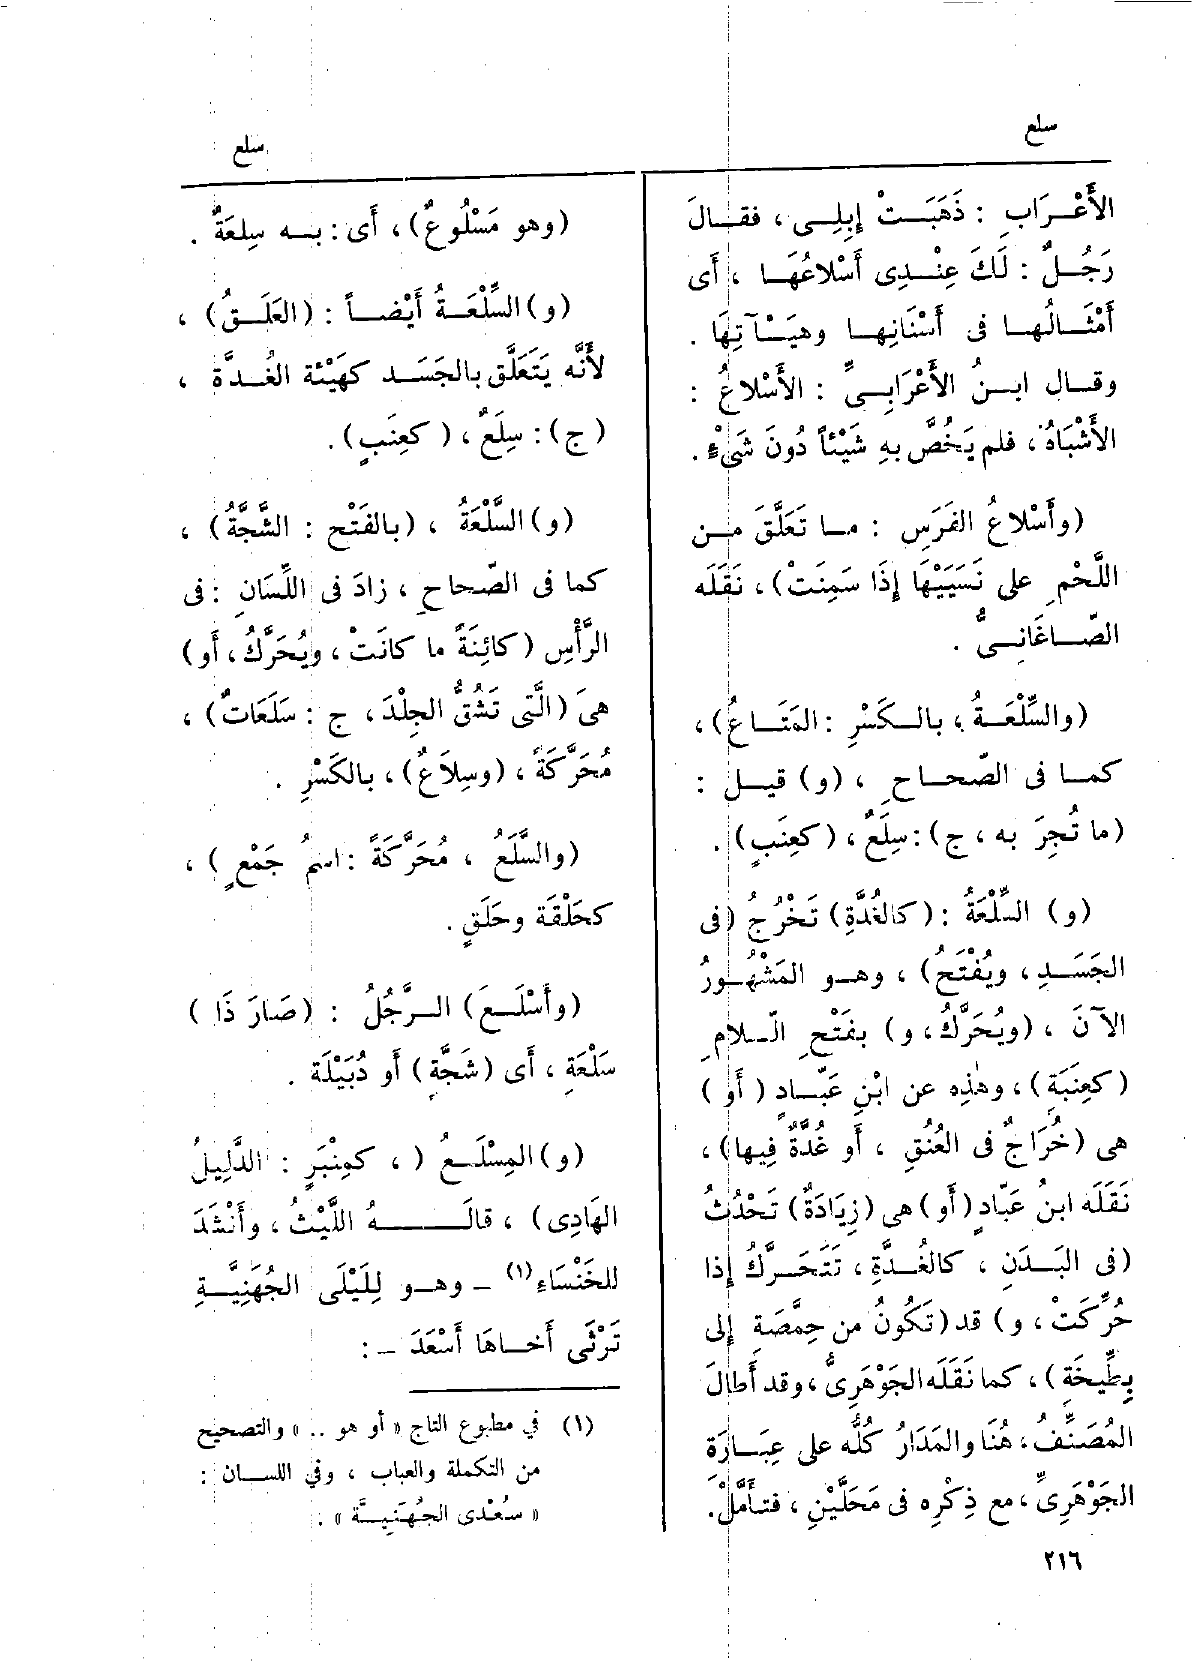 سلع
سلع
الأَعْرَابِ : ذَهَبَتْ إِبِلِى ، فقالَ
رَجُلٌ : لَكَ عِنْدِى أَسْلاعُهَا ، أَى
أَمْثَالُها فى أَسْنَانِها وهَيْآتِهَا .
وقال ابنُ الأَعْرَابِىِّ : الأَسْلاعُ :
الأَشْبَاهُ ، فلم يَخُصَّ بهِ شَيْئاً دُونَ شَىْءٍ .
(وأَسْلاعُ الفَرَسِ : ما تَعَلَّقَ من
اللَّحْمِ على نَسَيَيْهَا إِذَا سَمِنَتْ) ، نَقَلَه
الصّاغَانِىُّ .
(والسِّلْعَةُ ، بالكَسْرِ : المَتَاعُ) ،
كما فى الصّحاحِ ، (و) قيل :
(ما تُجِرَ به ، ج) : سِلَعٌ ، (كعِنَبٍ) .
(و) السِّلْعَةُ : (كالغُدَّةِ) تَخْرُجُ (فى
الجَسَدِ ، ويُفْتَحُ) ، وهو المَشْهُورُ
الآنَ ، (ويُحَرَّكُ ، و) بفَتْحِ الّلامِ
(كعِنَبَةٍ) ، وهٰذِه عن ابْنِ عَبّادٍ (أَو)
هى (خُرَاجٌ فى العُنُقِ ، أَو غُدَّةٌ فِيها) ،
نَقَلَه ابنُ عَبّادٍ (أَو) هى (زِيَادَةٌ) تَحْدُثُ
(فى البَدَنِ ، كالغُدَّةِ ، تَتَحَرَّكُ إِذا
حُرِّكَتْ ، و) قد (تَكُونُ من حِمَّصَةٍ إِلى
بِطِّيخَةٍ) ، كما نَقَلَه الجَوْهَرِىُّ ، وقد أَطالَ
المُصَنِّفُ ، هُنَا والمَدَارُ كُلُّه على عِبَارَةِ
الجَوْهَرِىِّ ، مع ذِكْرِه فى مَحَلَّيْنِ ، فتأَمَّلْ.
(وهو مَسْلُوعٌ) ، أَى : به سِلعَةٌ .
(و) السِّلْعَةُ أَيْضاً : (العَلَقُ) ،
لأَنَّه يَتَعَلَّق بالجَسَد كهَيْئة الغُدَّة ،
(ج) : سِلَعٌ ، (كعِنَبٍ) .
(و) السَّلْعَةُ ، (بالفَتْح : الشَّجَّةُ) ،
كما فى الصّحاحِ ، زادَ فى اللِّسَانِ : فى
الرَّأْسِ (كائِنَةً ما كانَتْ ، ويُحَرَّكُ ، أَو)
هىَ (الَّتِى تَشُقُّ الجِلْدَ ، ج : سَلَعَاتٌ) ،
مُحَرَّكَةً ، (وسِلاَعٌ) ، بالكَسْرِ .
(والسَّلَعُ ، مُحَرَّكَةً : اسمُ جَمْعٍ) ،
كحَلْقَة وحَلَقٍ .
(وأَسْلَعَ) الرَّجُلُ : (صَارَ ذَا )
سَلْعَةٍ ، أَى (شَجَّةٍ) أَو دُبَيْلَة .
(و) المِسْلَعُ ( ، كمِنْبَرٍ : الدَّلِيلُ
الهَادِى) ، قالَهُ اللَّيْثُ ، وأَنْشَدَ
للخَنْسَاءِ (١) ـ وهو لِلَيْلَى الجُهَنِيَّةِ
تَرْثَى أَخاهَا أَسْعَدَ ـ :
(١) في مطبوع التاج « أو هو .. » والتصحيح
من التكملة والعباب ، وفي اللسان :
« سُعْدى الجُهَنِيَّة » .
٢١٦